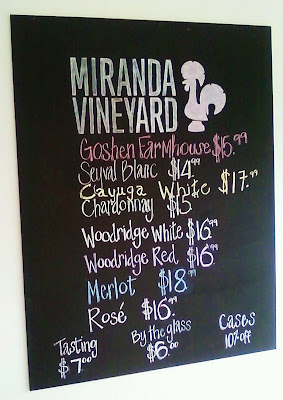 MIRANDA
VINEYARD
Goshen Farmhouse $15.99
Seyval Blanc $14.99
Cayuga White $17.99
Chardonnay $15
Woodridge White $16.99
Woodridge Red $16.99
Merlot $18.99
Rosé $16.99
Tasting
$7.00
By the glass
$6.00
Cases
10% off